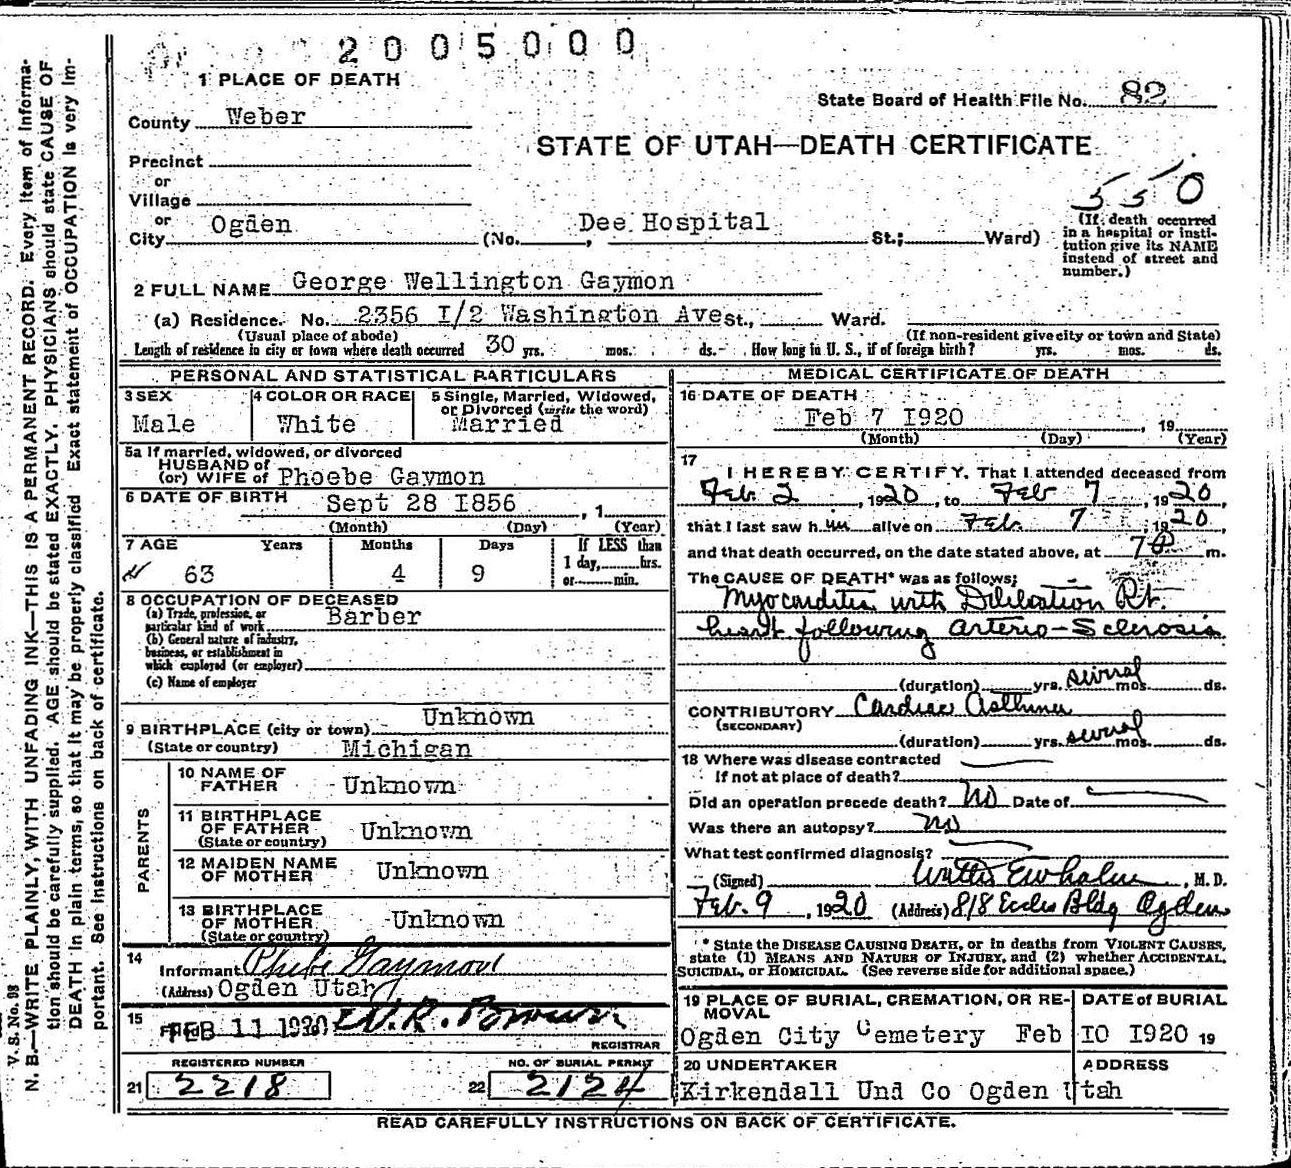 2005000
1 PLACE OF DEATH
State Board of Health File No. 82
County Weber
STATE OF UTAH—DEATH CERTIFICATE
Precinct
or
Village
550
or
City Ogden (No. , Dee Hospital St.; Ward)
(If death occurred
in a hospital or insti-
tution give its NAME
instead of street and
number.)
2 FULL NAME George Wellington Gaymon
(a) Residence. No. 2356 I/2 Washington Ave St., Ward.
(Usual place of abode) (If non-resident give city or town and State)
Length of residence in city or town where death occurred 30 yrs. mos. ds. How long in U. S., if of foreign birth? yrs. mos. ds.
PERSONAL AND STATISTICAL PARTICULARS
3 SEX
Male
4 COLOR OR RACE
White
5 Single, Married, Widowed,
or Divorced (write the word)
Married
5a If married, widowed, or divorced
HUSBAND of
(or) WIFE of Phoebe Gaymon
6 DATE OF BIRTH Sept 28 I856 , 1
(Month) (Day) (Year)
7 AGE Years Months Days If LESS than
1 day, hrs.
or min.
63 4 9
8 OCCUPATION OF DECEASED
(a) Trade, profession, or
particular kind of work Barber
(b) General nature of industry,
business, or establishment in
which employed (or employer)
(c) Name of employer
9 BIRTHPLACE (city or town) Unknown
(State or country) Michigan
PARENTS
10 NAME OF
FATHER Unknown
11 BIRTHPLACE
OF FATHER Unknown
(State or country)
12 MAIDEN NAME
OF MOTHER Unknown
13 BIRTHPLACE
OF MOTHER Unknown
(State or country)
14
Informant Phebe Gaymon
(Address) Ogden Utah
15 FEB 11 1920
REGISTRAR
REGISTERED NUMBER
21 2218
NO. OF BURIAL PERMIT
22 2124
MEDICAL CERTIFICATE OF DEATH
16 DATE OF DEATH
Feb 7 I920 , 19
(Month) (Day) (Year)
17
I HEREBY CERTIFY, That I attended deceased from
Feb. 2 , 1920, to Feb 7 , 1920
that I last saw him alive on Feb. 7 , 1920
and that death occurred, on the date stated above, at m.
The CAUSE OF DEATH* was as follows:
Myocarditis with Dilitation Rt.
heart following Arterio-Sclerosis
(duration) yrs. several mos. ds.
CONTRIBUTORY Cardiac Asthma
(SECONDARY)
(duration) yrs. several mos. ds.
18 Where was disease contracted
If not at place of death?
Did an operation precede death? No Date of
Was there an autopsy? No
What test confirmed diagnosis?
(Signed) , M. D.
Feb. 9 , 1920 (Address) 818 Eccles Bldg Ogden
* State the DISEASE CAUSING DEATH, or in deaths from VIOLENT CAUSES,
state (1) MEANS AND NATURE OF INJURY, and (2) whether ACCIDENTAL,
SUICIDAL, or HOMICIDAL. (See reverse side for additional space.)
19 PLACE OF BURIAL, CREMATION, OR RE-
MOVAL
DATE of BURIAL
Ogden City Cemetery Feb IO I920 19
20 UNDERTAKER ADDRESS
Kirkendall Und Co Ogden Utah
READ CAREFULLY INSTRUCTIONS ON BACK OF CERTIFICATE.
V. S. No. 98
N. B.—WRITE PLAINLY, WITH UNFADING INK—THIS IS A PERMANENT RECORD. Every item of informa-
tion should be carefully supplied. AGE should be stated EXACTLY. PHYSICIANS should state CAUSE OF
DEATH in plain terms, so that it may be properly classified. Exact statement of OCCUPATION is very im-
portant. See instructions on back of certificate.